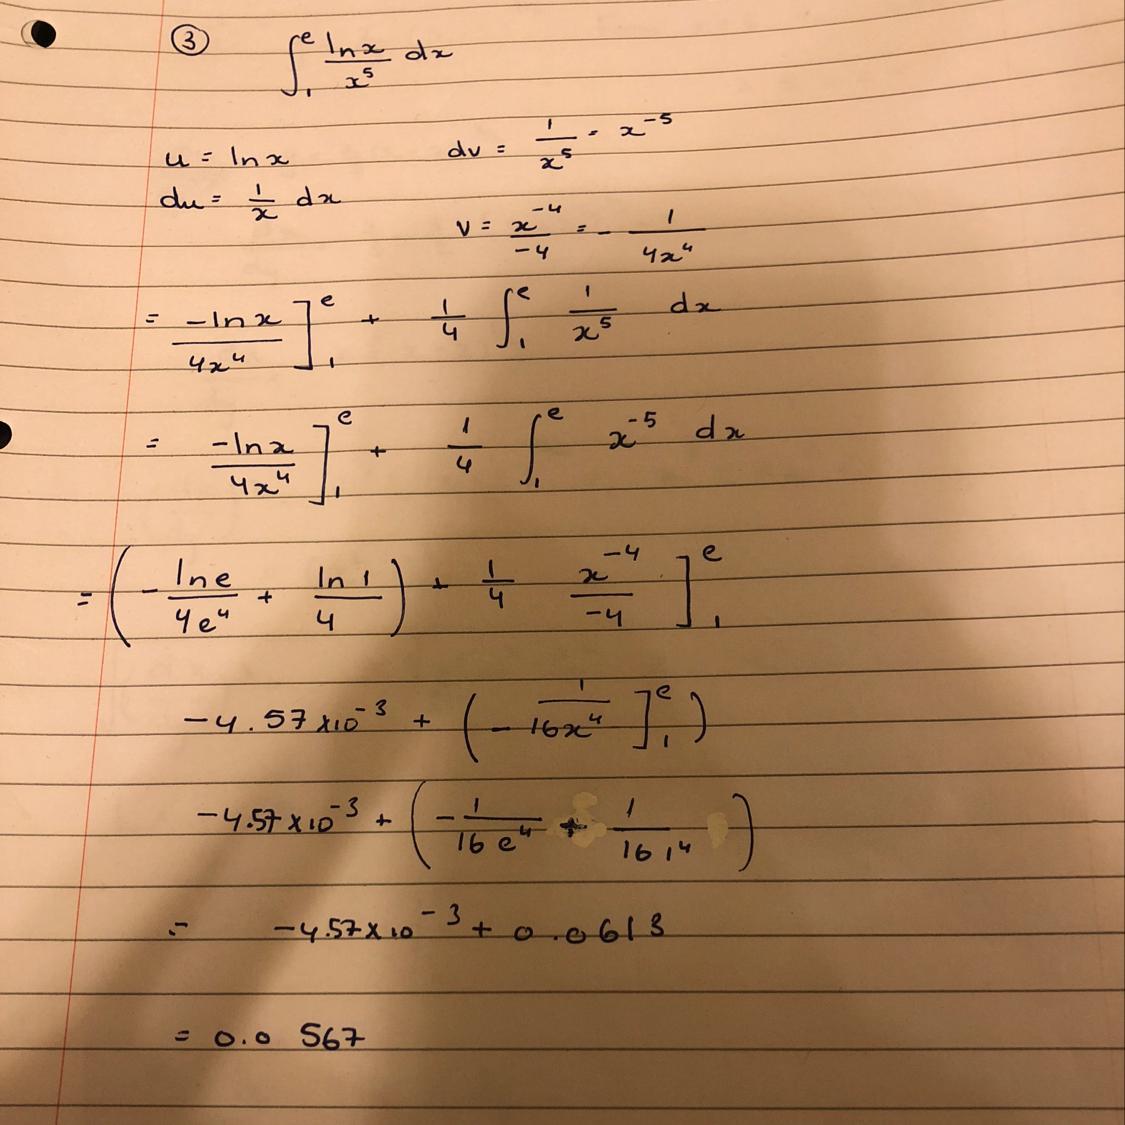 ③ ∫₁ᵉ ln x / x⁵ dx
u = ln x    dv = 1/x⁵ = x⁻⁵
du = 1/x dx
v = x⁻⁴/-4 = - 1/4x⁴
= -ln x/4x⁴ ]₁ᵉ + 1/4 ∫₁ᵉ 1/x⁵ dx
= -ln x/4x⁴ ]₁ᵉ + 1/4 ∫₁ᵉ x⁻⁵ dx
= ( - ln e/4e⁴ + ln 1/4 ) + 1/4 x⁻⁴/-4 ]₁ᵉ
-4.57 x10⁻³ + ( - 1/16x⁴ ]₁ᵉ )
-4.57 x10⁻³ + ( - 1/16 e⁴ + 1/16 1⁴ )
= -4.57 x10⁻³ + 0.0613
= 0.0 567